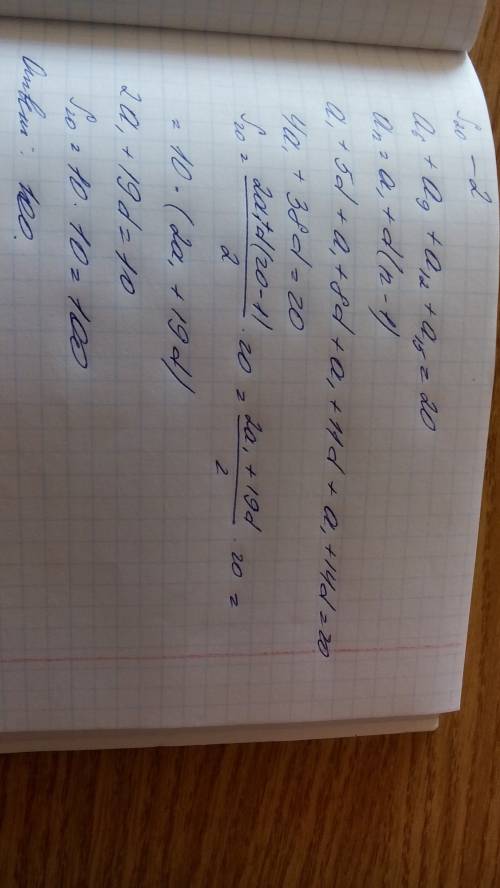 S₂₀ - 2
a₆ + a₉ + a₁₂ + a₁₅ = 20
aₙ = a₁ + d(n-1)
a₁ + 5d + a₁ + 8d + a₁ + 11d + a₁ + 14d = 20
4a₁ + 38d = 20
S₂₀ = (2a₁ + d(20-1))/2 · 20 = (2a₁ + 19d)/2 · 20 =
= 10 · (2a₁ + 19d)
2a₁ + 19d = 10
S₂₀ = 10 · 10 = 100
Ответ: 100.